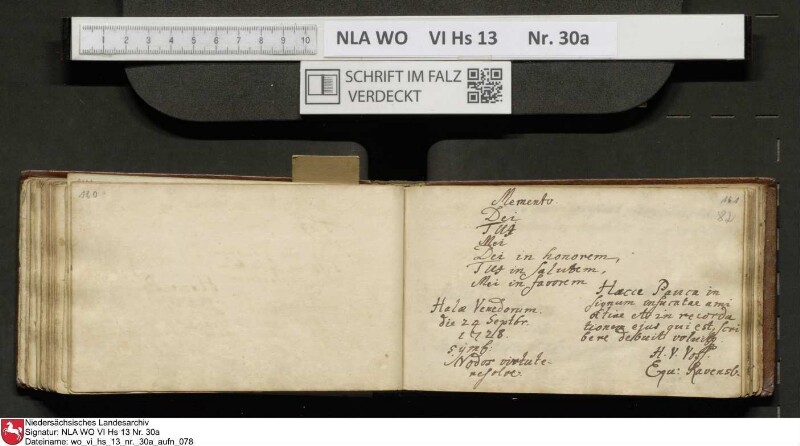 1 2 3 4 5 6 7 8 9 10
NLA WO VI Hs 13 Nr. 30a
SCHRIFT IM FALZ
VERDECKT
160
161
82
Memento
Dei
Tui
Mei
Dei in honorem,
Tui in salutem,
Mei in favorem
Halæ Venedorum.
die 24 Septbr.
1728.
Symb:
Nodos virtute
resolvo.
Hæcce Pauca in
signum infucatae ami
citiae et in recorda
tionem ejus qui est, scri
bere debuit voluit
H. V. Voss.
Equ: Ravensb.
Niedersächsisches Landesarchiv
Signatur: NLA WO VI Hs 13 Nr. 30a
Dateiname: wo_vi_hs_13_nr._30a_aufn_078